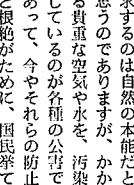 求するのは自然の本能だと
思うのでありますが、かか
る貴重な空気や水を、汚染
しているのが各種の公害で
あって、今やそれらの防止
と根絶がために、国民挙て